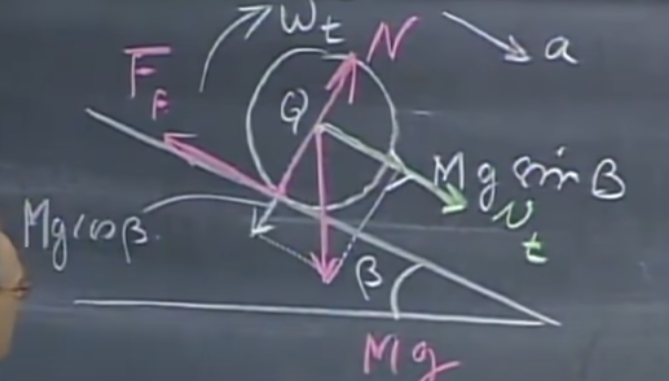 ωt
N
a
FF
Q
Mg sin β
vt
Mg cos β.
β
Mg